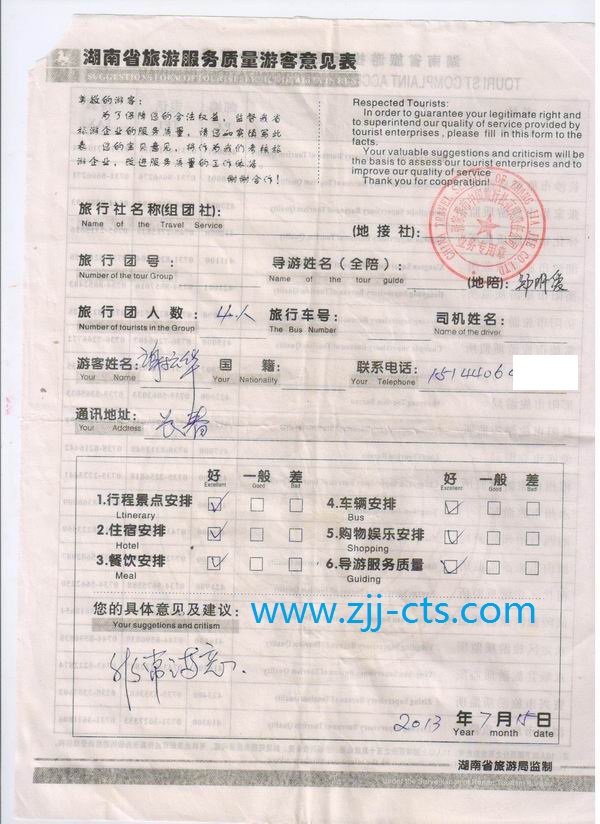 湖南省旅游服务质量游客意见表
尊敬的游客:
为了保障您的合法权益，监督我省
旅游企业的服务质量，请您如实填写此
表。您的宝贵意见，将作为我们考核旅
游企业，改进服务质量的工作依据。
谢谢合作！
Respected Tourists:
In order to guarantee your legitimate right and
to superintend our quality of service provided by
tourist enterprises , please fill in this form to the
facts.
Your valuable suggestions and criticism will be
the basis to assess our tourist enterprises and to
improve our quality of service
Thank you for cooperation!
旅行社名称(组团社): (地接社):
Name of the Travel Service
旅行团号: 导游姓名(全陪): (地陪):
Number of the tour Group Name of the tour guide
旅行团人数: 4人 旅行车号: 司机姓名:
Number of tourists in the Group The Bus Number Name of the driver
游客姓名: 国籍: 联系电话: 15144064
Your Name Your Nationality Your Telephone
通讯地址: 长春
Your Address
好 一般 差 好 一般 差
Excellent Good Bad Excellent Good Bad
1.行程景点安排 4.车辆安排
Ltinerary Bus
2.住宿安排 5.购物娱乐安排
Hotel Shopping
3.餐饮安排 6.导游服务质量
Meal Guiding
您的具体意见及建议:
Your suggetions and critism
www.zjj-cts.com
非常满意.
2013 年 7 月 15 日
Year month date
湖南省旅游局监制